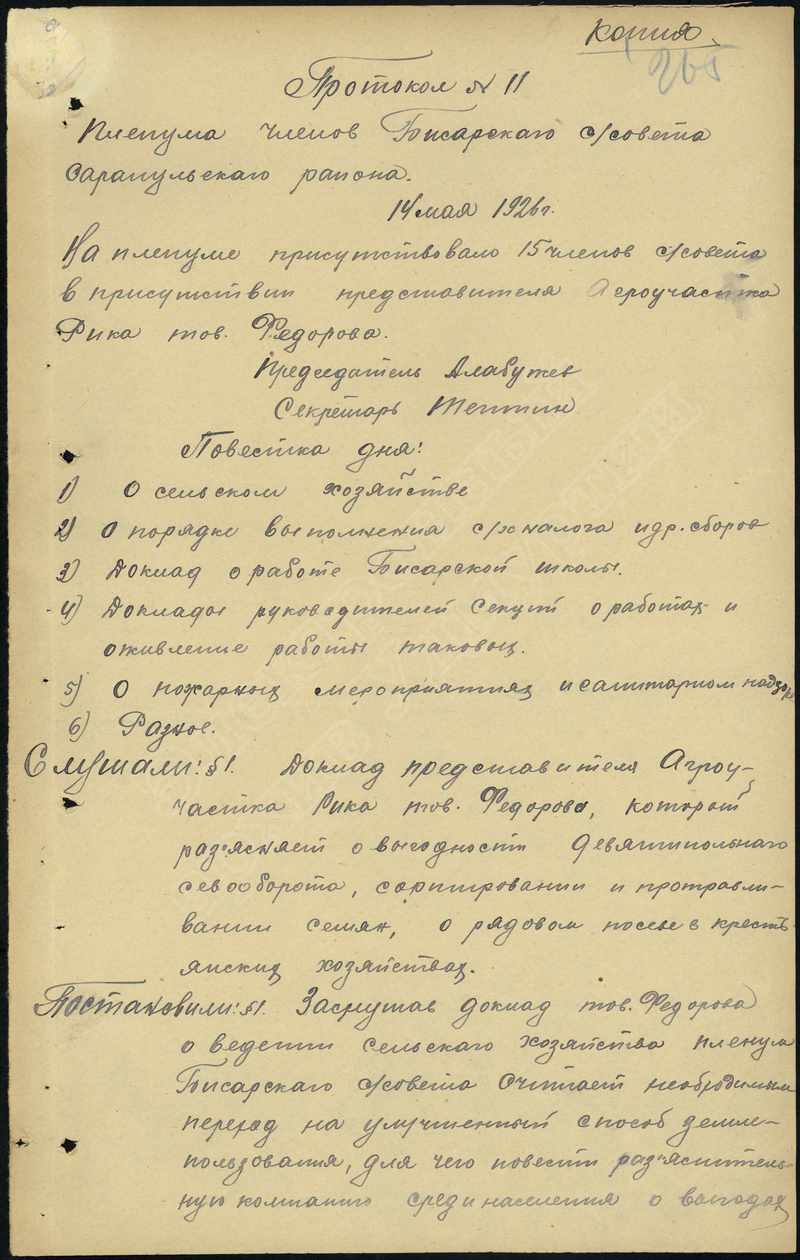 Копия.
265
Протокол № 11
Пленума членов Бисарскаго с/совета
Сарапульскаго района.
14 мая 1926 г.
На пленуме присутствовало 15 членов с/совета
в присутствии представителя Агроучастка
Рика тов. Федорова.
Председатель Алабужев
Секретарь Тептин
Повестка дня:
1) О сельском хозяйстве
2) О порядке выполнения с/х налога и др. сборов
3) Доклад о работе Бисарской школы.
4) Доклады руководителей Секций о работах и
оживление работы таковых.
5) О пожарных мероприятиях и санитарном надзоре
6) Разное.
Слушали: §1. Доклад представителя Агроу-
частка Рика тов. Федорова, который
раз'ясняет о выгодности девятипольнаго
севооборота, сортировании и протравли-
вании семян, о рядовом посеве в кресть-
янских хозяйствах.
Постановили: §1. Заслушав доклад тов. Федорова
о ведении сельскаго хозяйства пленум
Бисарскаго с/совета Считает необходимым
переход на улучшенный способ земле-
пользования, для чего повести раз'яснитель-
ную компанию среди населения о выгодах